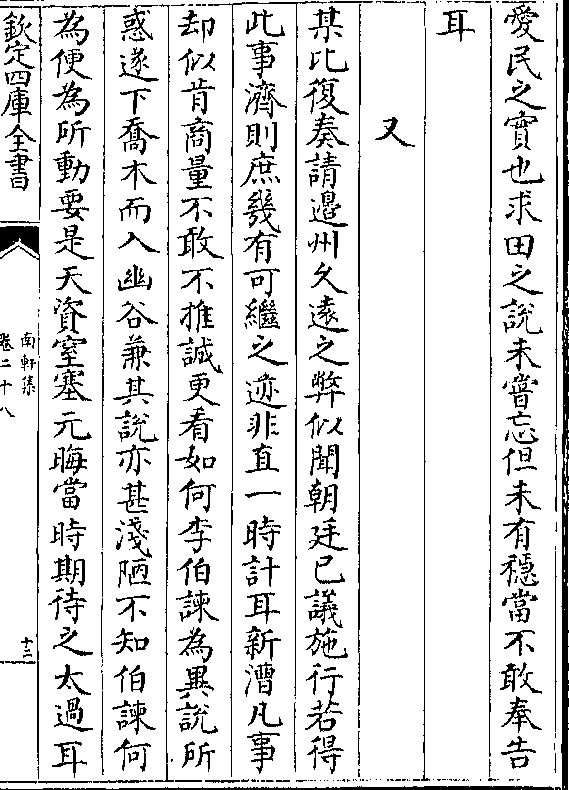 愛民之實也求田之說未嘗忘但未有穩當不敢奉告
耳
又
某比復奏請邉州久遠之弊似聞朝廷已議施行若得
此事濟則庶幾有可繼之迹非直一時計耳新漕凡事
却似肯商量不敢不推誠更看如何李伯諫為異說所
惑遂下喬木而入幽谷兼其說亦甚淺陋不知伯諫何
為便為所動要是天資窒塞元晦當時期待之太過耳
欽定四庫全書
南軒集
卷二十八
十三